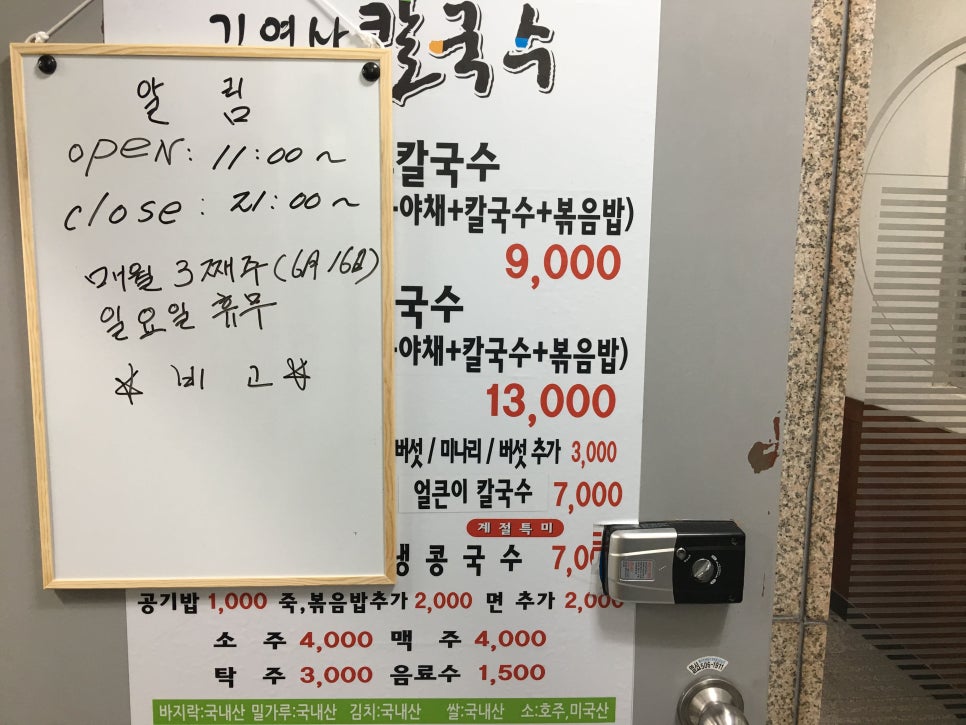 기영사 칼국수
알 림
OPEN: 11:00 ~
close : 21:00 ~
매월 3째주 (6月 16日)
일요일 휴무
☆ 비 고 ☆
칼국수
야채+칼국수+볶음밥)
9,000
국수
야채+칼국수+볶음밥)
13,000
버섯 / 미나리 / 버섯 추가 3,000
얼큰이 칼국수 7,000
계절특미
냉콩국수
공기밥 1,000 죽,볶음밥추가 2,000 면 추가 2,000
소 주 4,000 맥 주 4,000
탁 주 3,000 음료수 1,500
바지락:국내산 밀가루:국내산 김치:국내산 쌀:국내산 소:호주,미국산